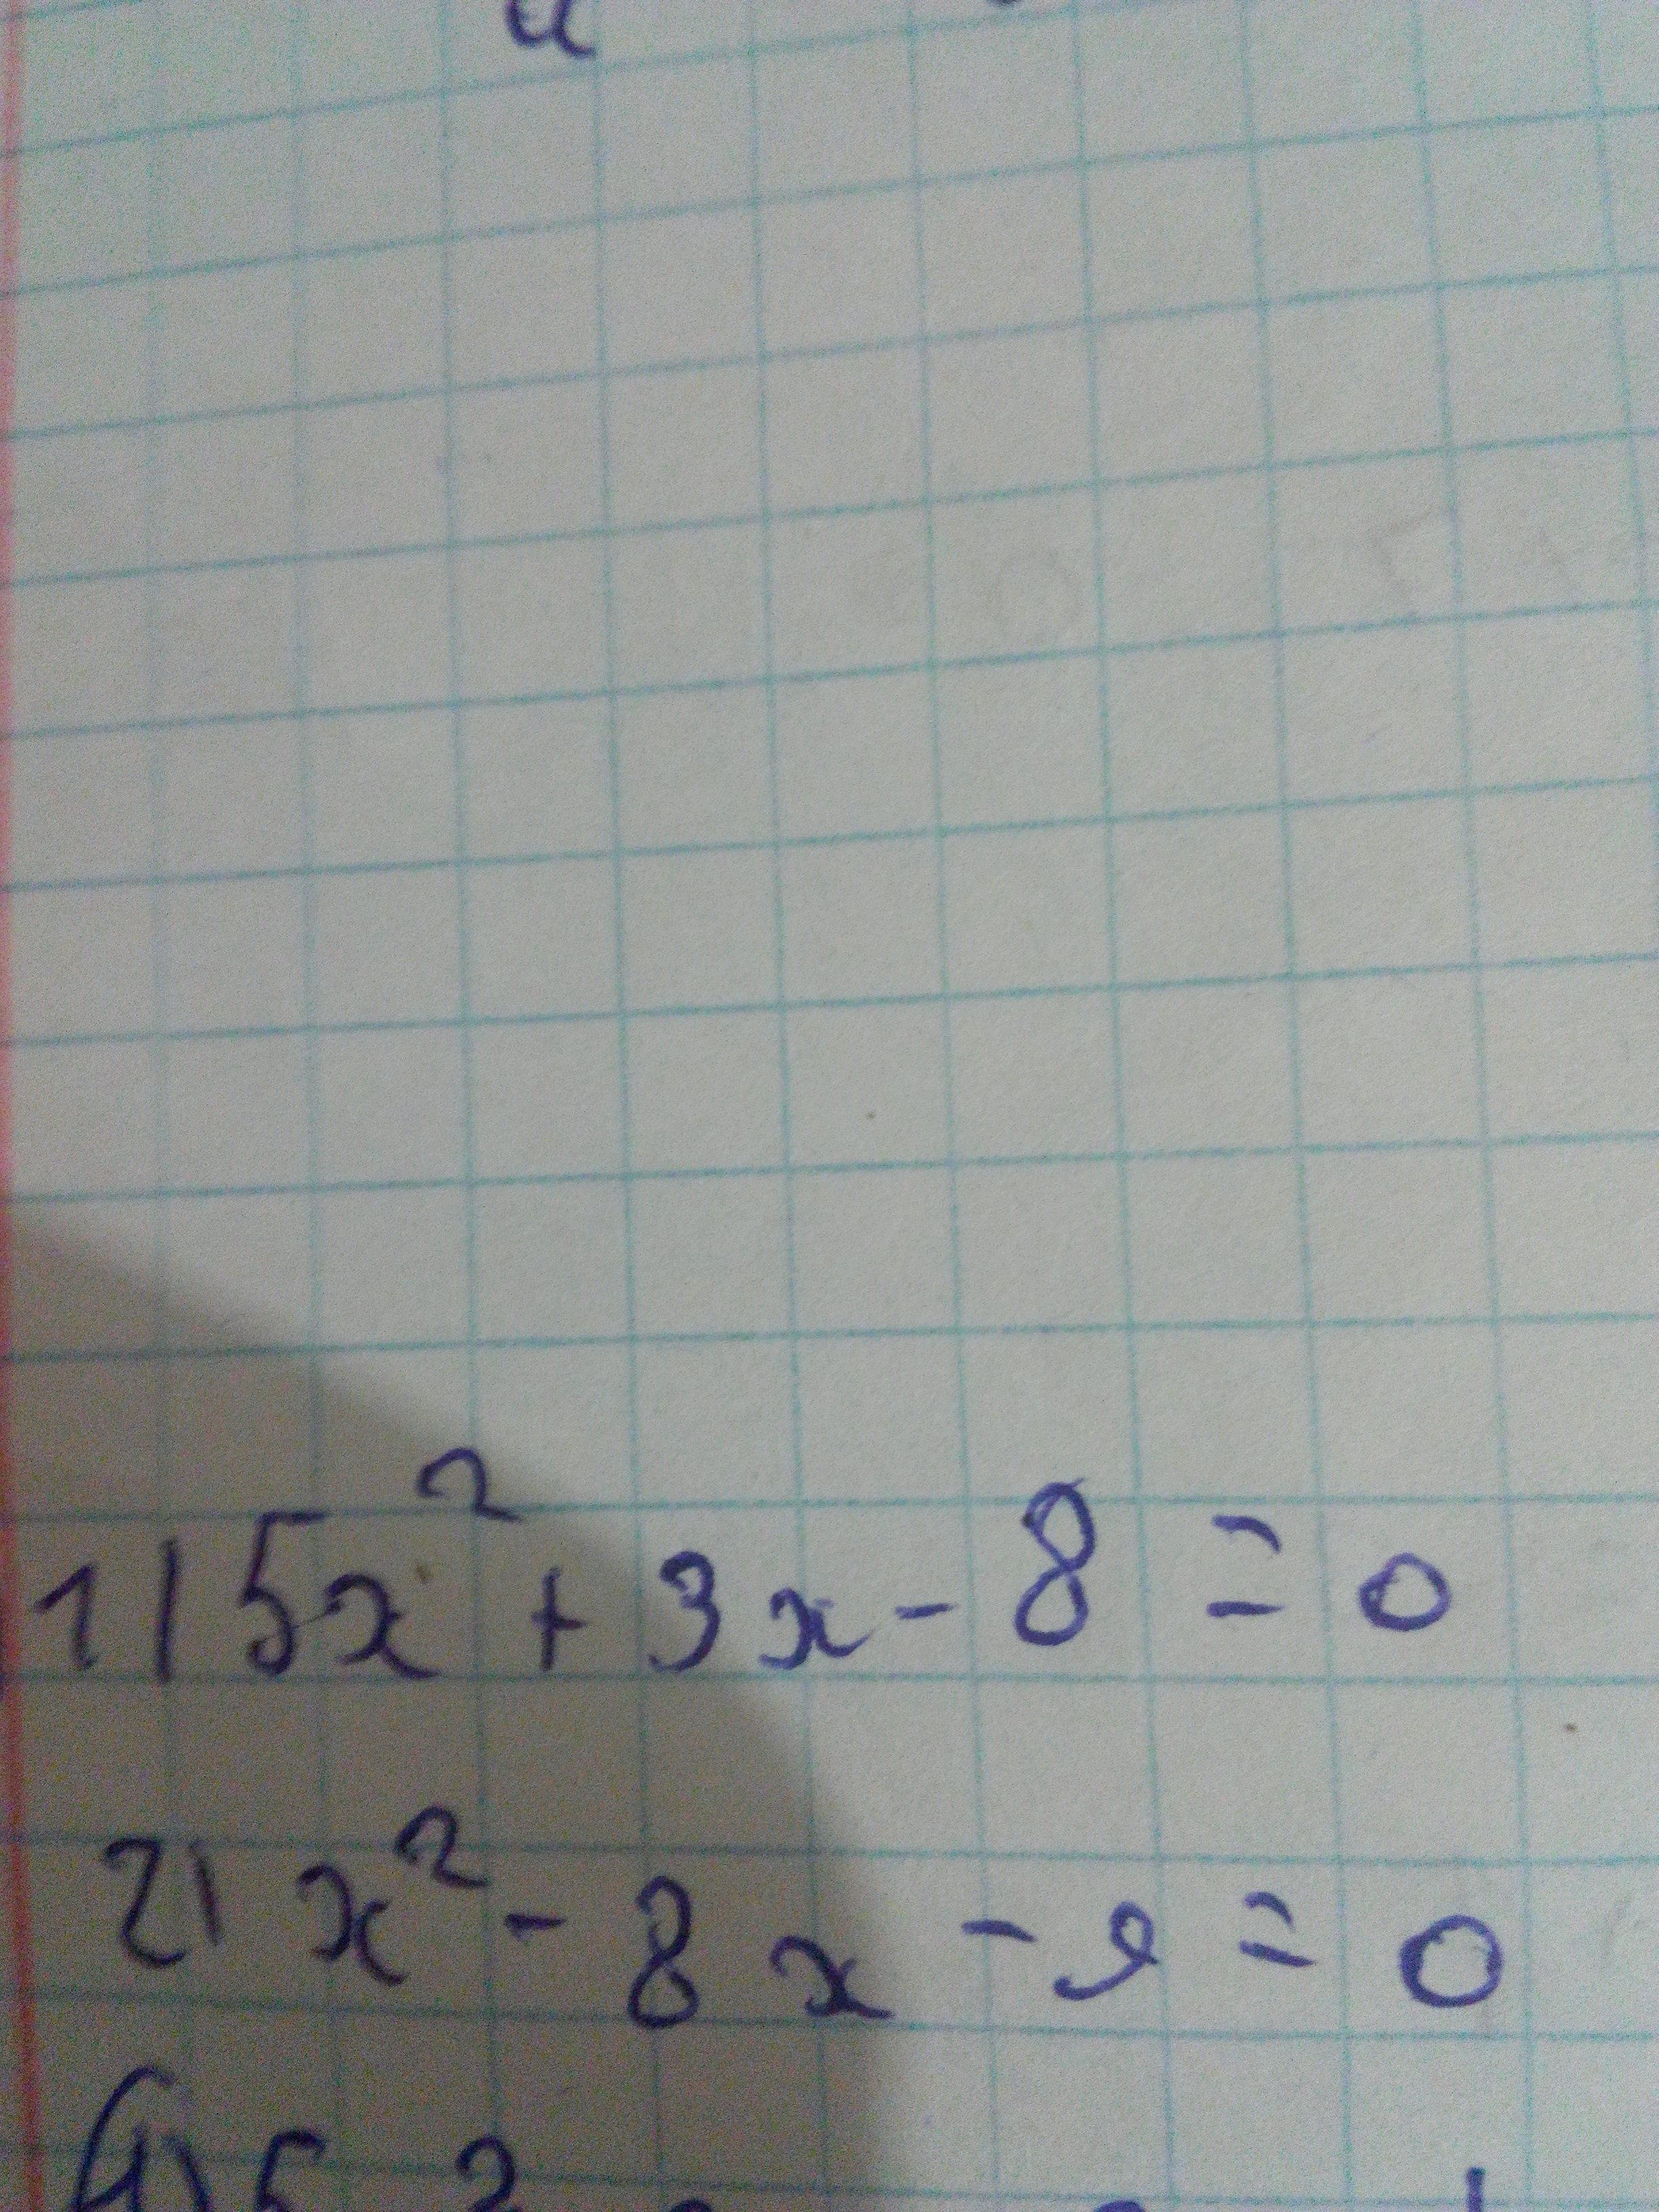 1) 5x² + 3x - 8 = 0
2) x² - 8x - 9 = 0